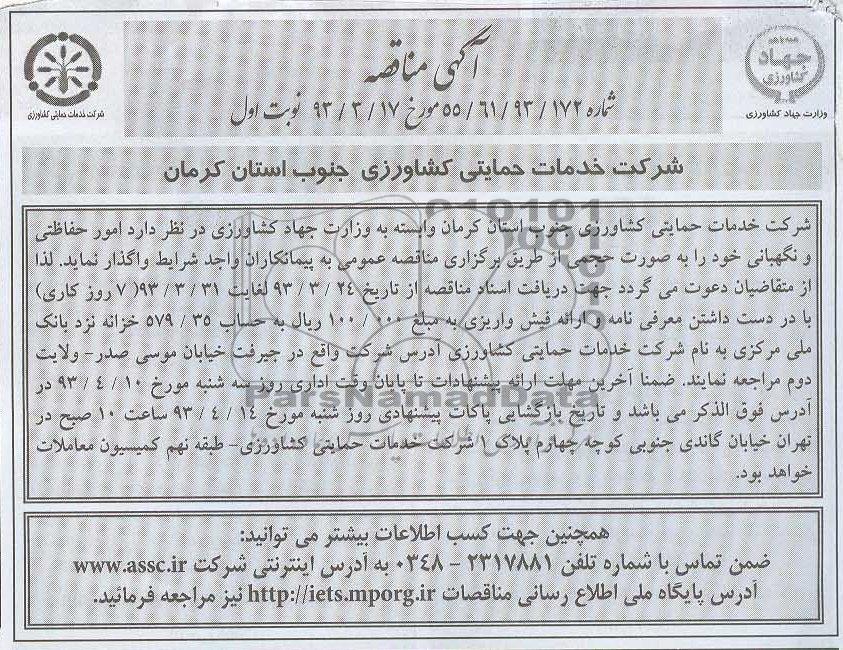 آگهی مناقصه
شماره ۱۷۲ / ۹۳ / ۶۱ / ۵۵ مورخ ۱۷ / ۳ / ۹۳ نوبت اول
شرکت خدمات حمایتی کشاورزی
جهاد
کشاورزی
وزارت جهاد کشاورزی
شرکت خدمات حمایتی کشاورزی جنوب استان کرمان
شرکت خدمات حمایتی کشاورزی جنوب استان کرمان وابسته به وزارت جهاد کشاورزی در نظر دارد امور حفاظتی
و نگهبانی خود را به صورت حجمی از طریق برگزاری مناقصه عمومی به پیمانکاران واجد شرایط واگذار نماید. لذا
از متقاضیان دعوت می گردد جهت دریافت اسناد مناقصه از تاریخ ۲۴ / ۳ / ۹۳ لغایت ۳۱ / ۳ / ۹۳( ۷ روز کاری)
با در دست داشتن معرفی نامه و ارائه فیش واریزی به مبلغ ۰۰۰ / ۱۰۰ ریال به حساب ۳۵ / ۵۷۹ خزانه نزد بانک
ملی مرکزی به نام شرکت خدمات حمایتی کشاورزی آدرس شرکت واقع در جیرفت خیابان موسی صدر- ولایت
دوم مراجعه نمایند. ضمنا آخرین مهلت ارائه پیشنهادات تا پایان وقت اداری روز سه شنبه مورخ ۱۰ / ۴ / ۹۳ در
آدرس فوق الذکر می باشد و تاریخ بازگشایی پاکات پیشنهادی روز شنبه مورخ ۱۴ / ۴ / ۹۳ ساعت ۱۰ صبح در
تهران خیابان گاندی جنوبی کوچه چهارم پلاک ۱ شرکت خدمات حمایتی کشاورزی- طبقه نهم کمیسیون معاملات
خواهد بود.
ParsNamadData
همچنین جهت کسب اطلاعات بیشتر می توانید:
ضمن تماس با شماره تلفن ۲۳۱۷۸۸۱ - ۰۳۴۸ به آدرس اینترنتی شرکت www.assc.ir
آدرس پایگاه ملی اطلاع رسانی مناقصات http://iets.mporg.ir نیز مراجعه فرمائید.